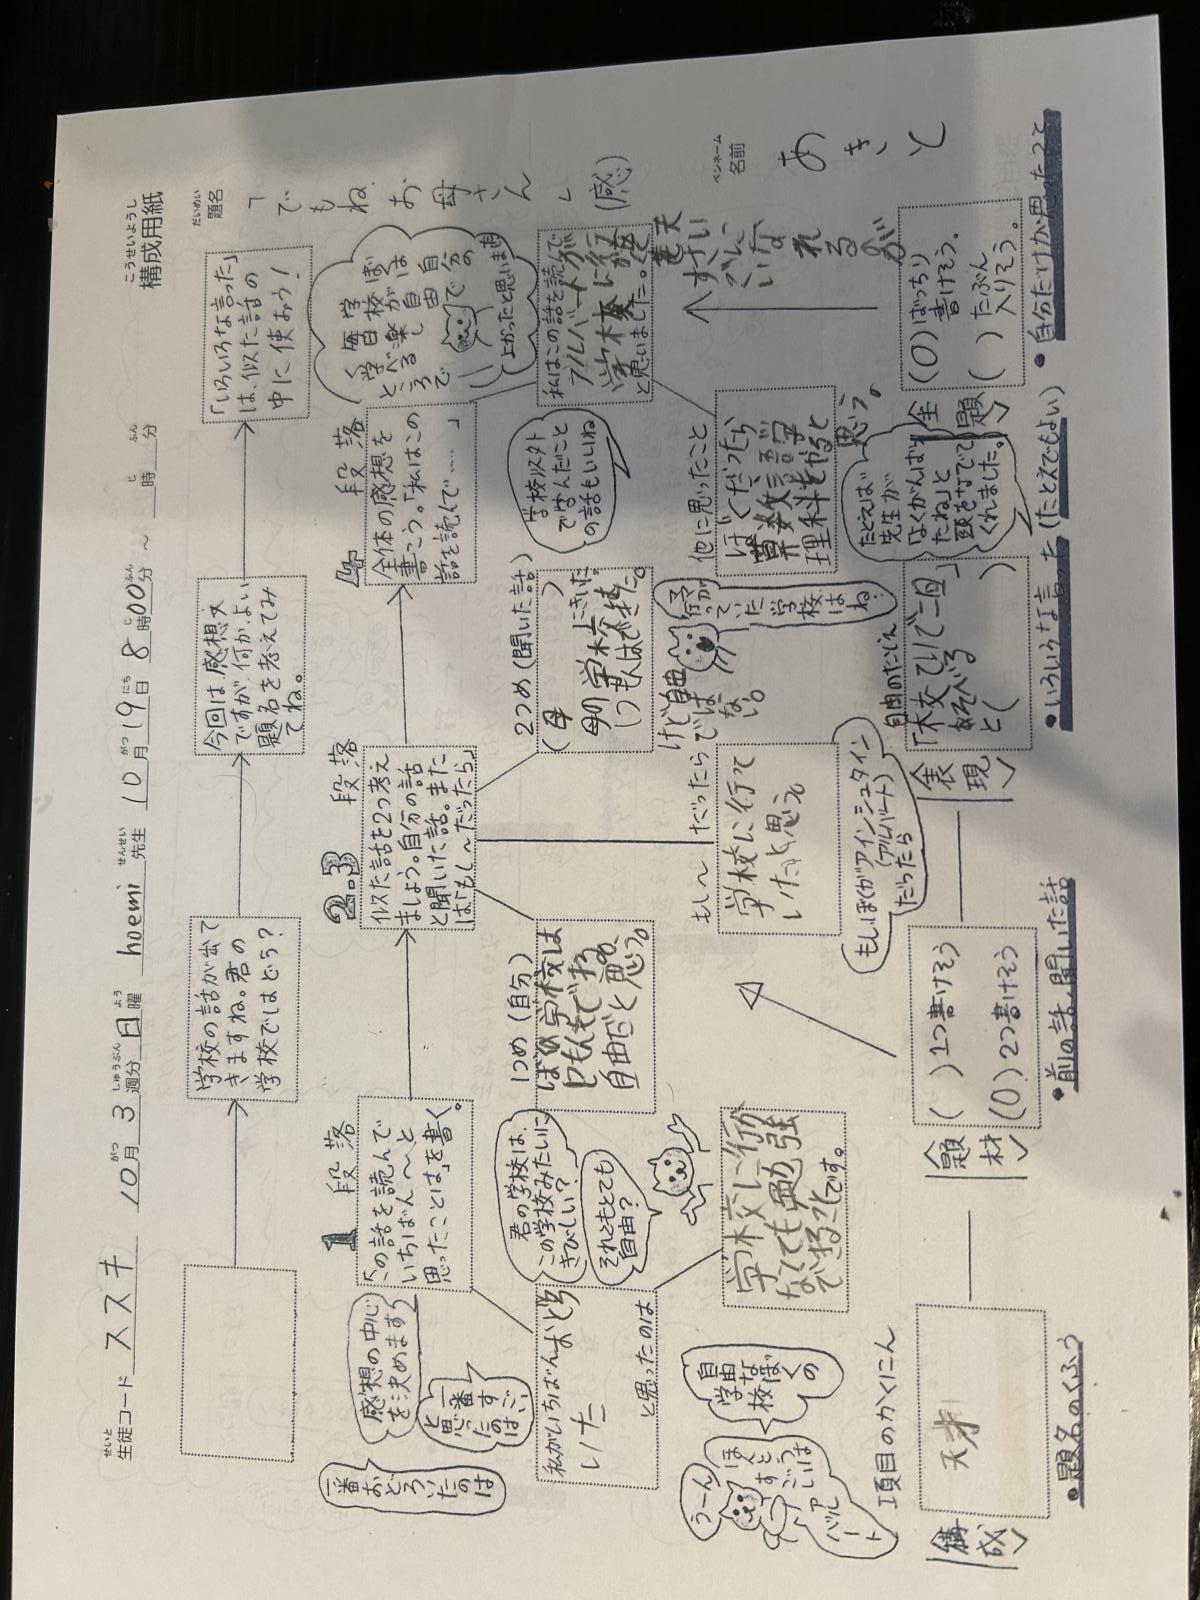 構成用紙
こうせいようし
生徒コード ススキ 10月3週分 日曜 hoemi 先生 10月19日 8時00分～ 時 分
題名
だいめい
「でもね、お母さん」(感)
ペンネーム
名前
あきと
学校の話が出て
きますね。君の
学校ではどう?
今回は感想文
ですが、何か、よい
題名を考えてみ
てね。
「いろいろな言った」
は、似た話の
中に使おう!
1段落
「この話を読んで
いちばん～と
思ったことは」を書く。
2.3段落
似た話を2つ考え
ましょう。自分の話
と聞いた話。また
は「もし～だったら」
段落
全体の感想を
書こう。「私はこの
話を読んで……」
感想の中心
を決めます
一番す
ごい
と思
ったのは
一番おどろいたのは
私がいちばんおどろ
いた
と思ったのは
学校に行か
なくても勉強
できることです。
君の学校は、
この学校みたいに
きびしい?
それともとても
自由?
自由な
学校
ぼくの
うーん
ほんとうに
すごいは
アルバート
1つめ(自分)
ぼくの学校は
自由だと思う。
2つめ(聞いた話)
(母)
学校以外
で学んだこと
の話もいいね
もし～だったら
学校に行って
いたと思う
もしぼくがアインシュタイン
(アルバート)
だったら
けど自由
ではない。
他に思ったこと
ぼくだったら
算数、国語、
理科をやると
思う。
私はこの話を読んで
アルバートが
学校に行
と思いました。
学校がぼくは
毎日楽し
自由で
項目のかくにん
構成
天才
題材
( )1つ書けそう
(○)2つ書けそう
表現
自由のたとえ
たとえば
先生が
「よくがんばっ
たね」と
頭をなでて
くれました。
主題
(○)ばっちり
書けそう。
( )たぶん
入りそう。
•題名のくふう
•前の話、聞いた話
•いろいろな言った(たとえでもよい)
•自分だけが思ったこと